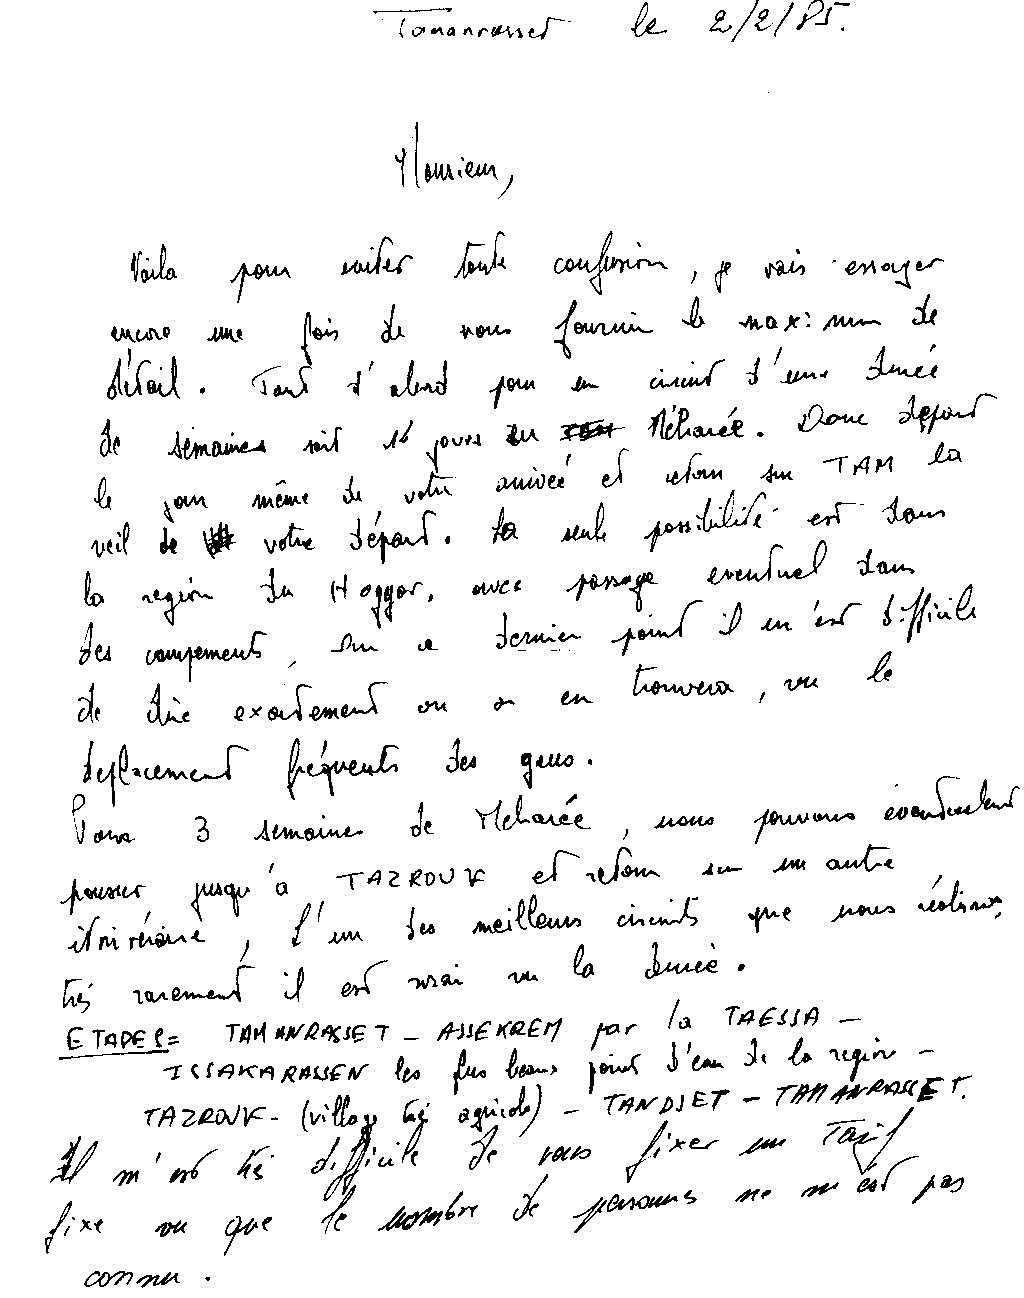 Tamanrasset le 2/2/85.
Monsieur,
Voila pour eviter toute confusion, je vais essayer
encore une fois de vous fournir le maximum de
détail. Tout d'abord pour un circuit d'une durée
de semaines soit jours en Méharée. Donc depart
le jour même de votre arrivée et retour sur TAM la
veil de votre départ. la seule possibilité est dans
la region du Hoggar, avec passage eventuel dans
des campements, sur ce dernier point il m'est difficile
de dire exactement ou on en trouvera, vu le
deplacement fréquents des gens.
Pour 3 semaines de Meharée, nous pouvons éventuelement
pousser jusqu'à TAZROUK et retour sur un autre
itiniréraire, l'un des meilleurs circuits que nous réalisons,
trés rarement il est vrai vu la durée.
ETAPES= TAMANRASSET - ASSEKREM par la TAESSA -
ISSAKARASSEN les plus beaux point d'eau de la region -
TAZROUK - (village trés agricole) - TANDJET - TAMANRASSET.
Il m'est trés difficile de vous fixer un Tarif
fixe vu que le nombre de personnes ne m'est pas
connu.